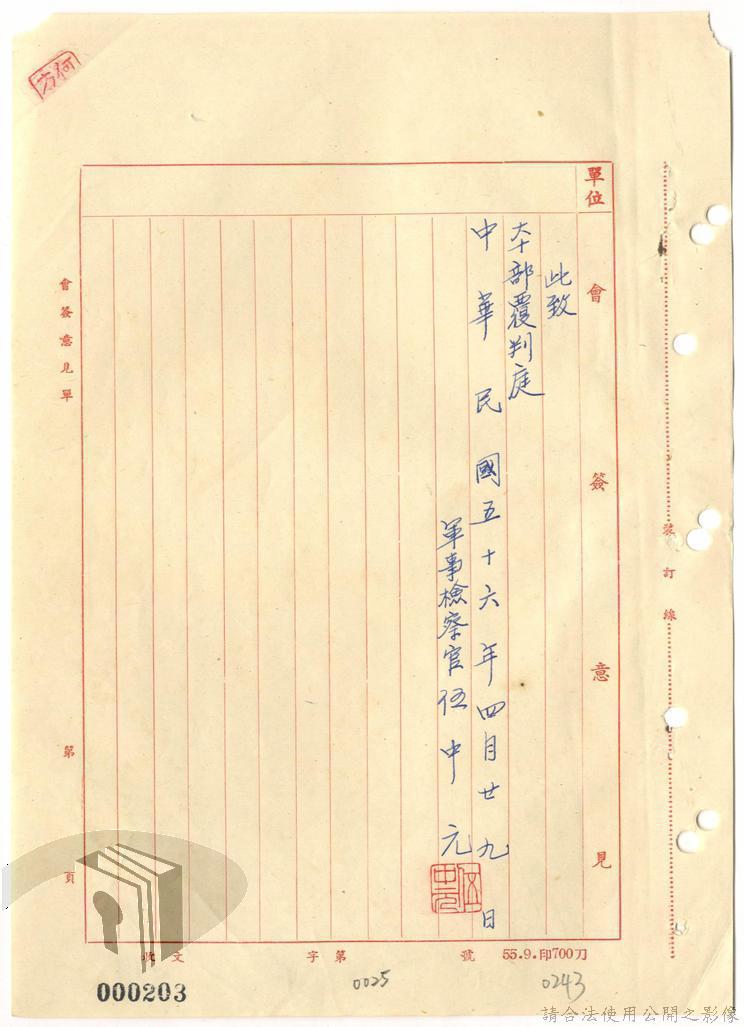 何方
單位
會簽意見
此致
本部覆判庭
中華民國五十六年四月廿九日
軍事檢察官伍中元
伍中元
裝訂線
會簽意見單
第 頁
收文 字第 號 55.9.印700刀
000203
0025
0243
請合法使用公開之影像